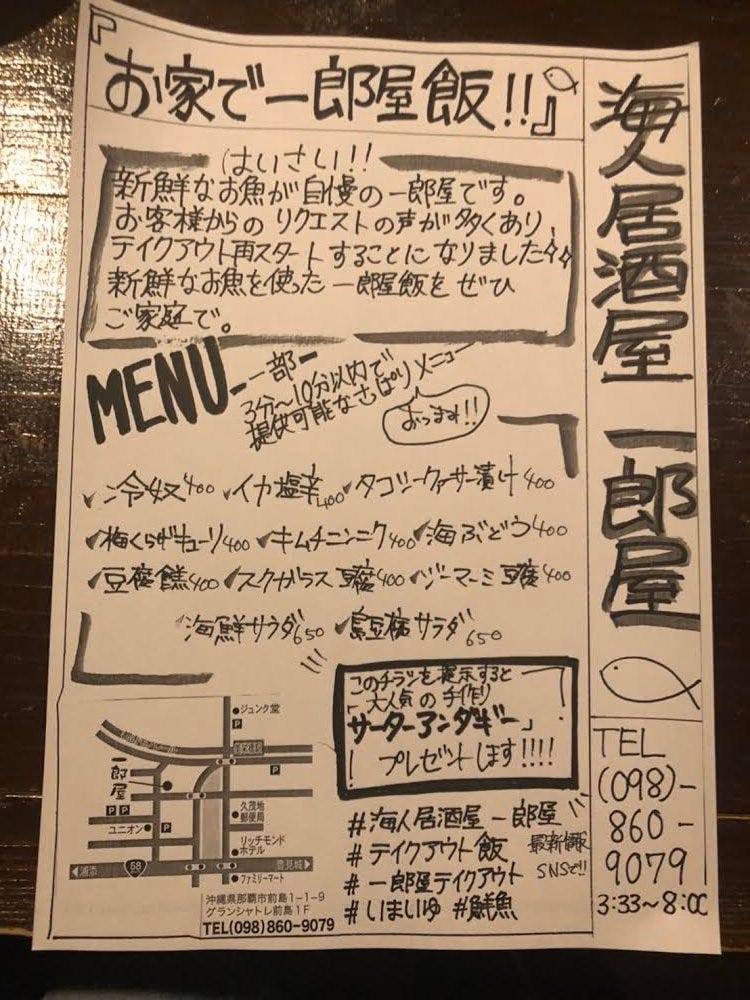 『お家で一郎屋飯!!』
はいさい!!
新鮮なお魚が自慢の一郎屋です。
お客様からのリクエストの声が多くあり、
テイクアウト再スタートすることになりました
新鮮なお魚を使った一郎屋飯をぜひ
ご家庭で。
MENU -一部-
3分~10分以内で
提供可能なさっぱりメニュー
おつまみ!!
✓冷奴400 ✓イカ塩辛400 ✓タコシークァーサー漬け400
✓梅くらげキューリ400 ✓キムチニンニク400 ✓海ぶどう400
✓豆腐餻400 ✓スクガラス豆腐400 ✓ジーマーミ豆腐400
✓海鮮サラダ650 ✓島豆腐サラダ650
このチラシを提示すると
大人気の手作り
「サーターアンダギー」
プレゼントします!!!!
#海人居酒屋一郎屋
#テイクアウト飯
#一郎屋テイクアウト
#いまいゆ #鮮魚
最新情報
SNSで!!
ジュンク堂
P
P
一郎屋
P P
ユニオン
P
久茂地
郵便局
リッチモンド
ホテル
浦添
58
豊見城
ファミリーマート
沖縄県那覇市前島1-1-9
グランシャトレ前島1F
TEL(098)860-9079
海人居酒屋 一郎屋
TEL
(098)-
860-
9079
3:33~8:00